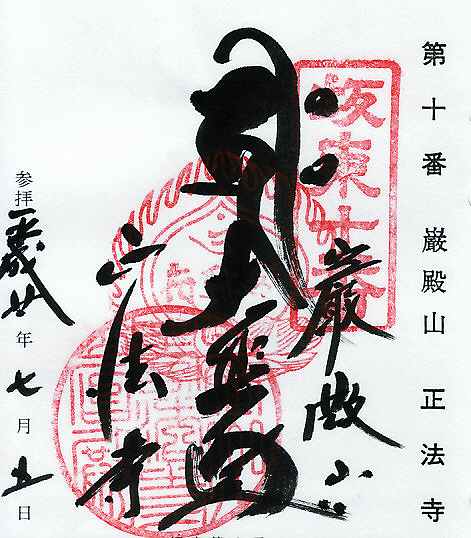 第十番 巌殿山 正法寺
坂東十番
巌殿山
大悲
正法寺
参拝平成廿年七月五日